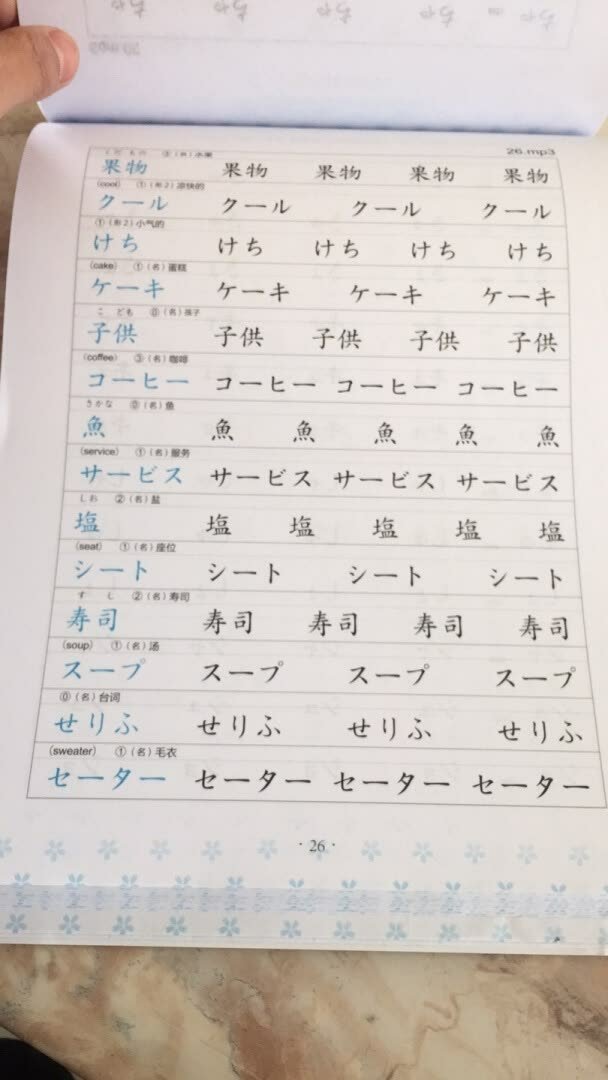 くだ もの ②(名)水果 26.mp3
果物 果物 果物 果物 果物
(cool) ①(形2)凉快的
クール クール クール クール
①(形2)小气的
けち けち けち けち けち
(cake) ①(名)蛋糕
ケーキ ケーキ ケーキ ケーキ
こ ども ⓪(名)孩子
子供 子供 子供 子供 子供
(coffee) ③(名)咖啡
コーヒー コーヒー コーヒー コーヒー
さかな ⓪(名)鱼
魚 魚 魚 魚 魚 魚
(service) ①(名)服务
サービス サービス サービス サービス
しお ②(名)盐
塩 塩 塩 塩 塩 塩
(seat) ①(名)座位
シート シート シート シート
す し ②(名)寿司
寿司 寿司 寿司 寿司 寿司
(soup) ①(名)汤
スープ スープ スープ スープ
⓪(名)台词
せりふ せりふ せりふ せりふ
(sweater) ①(名)毛衣
セーター セーター セーター セーター
·26·